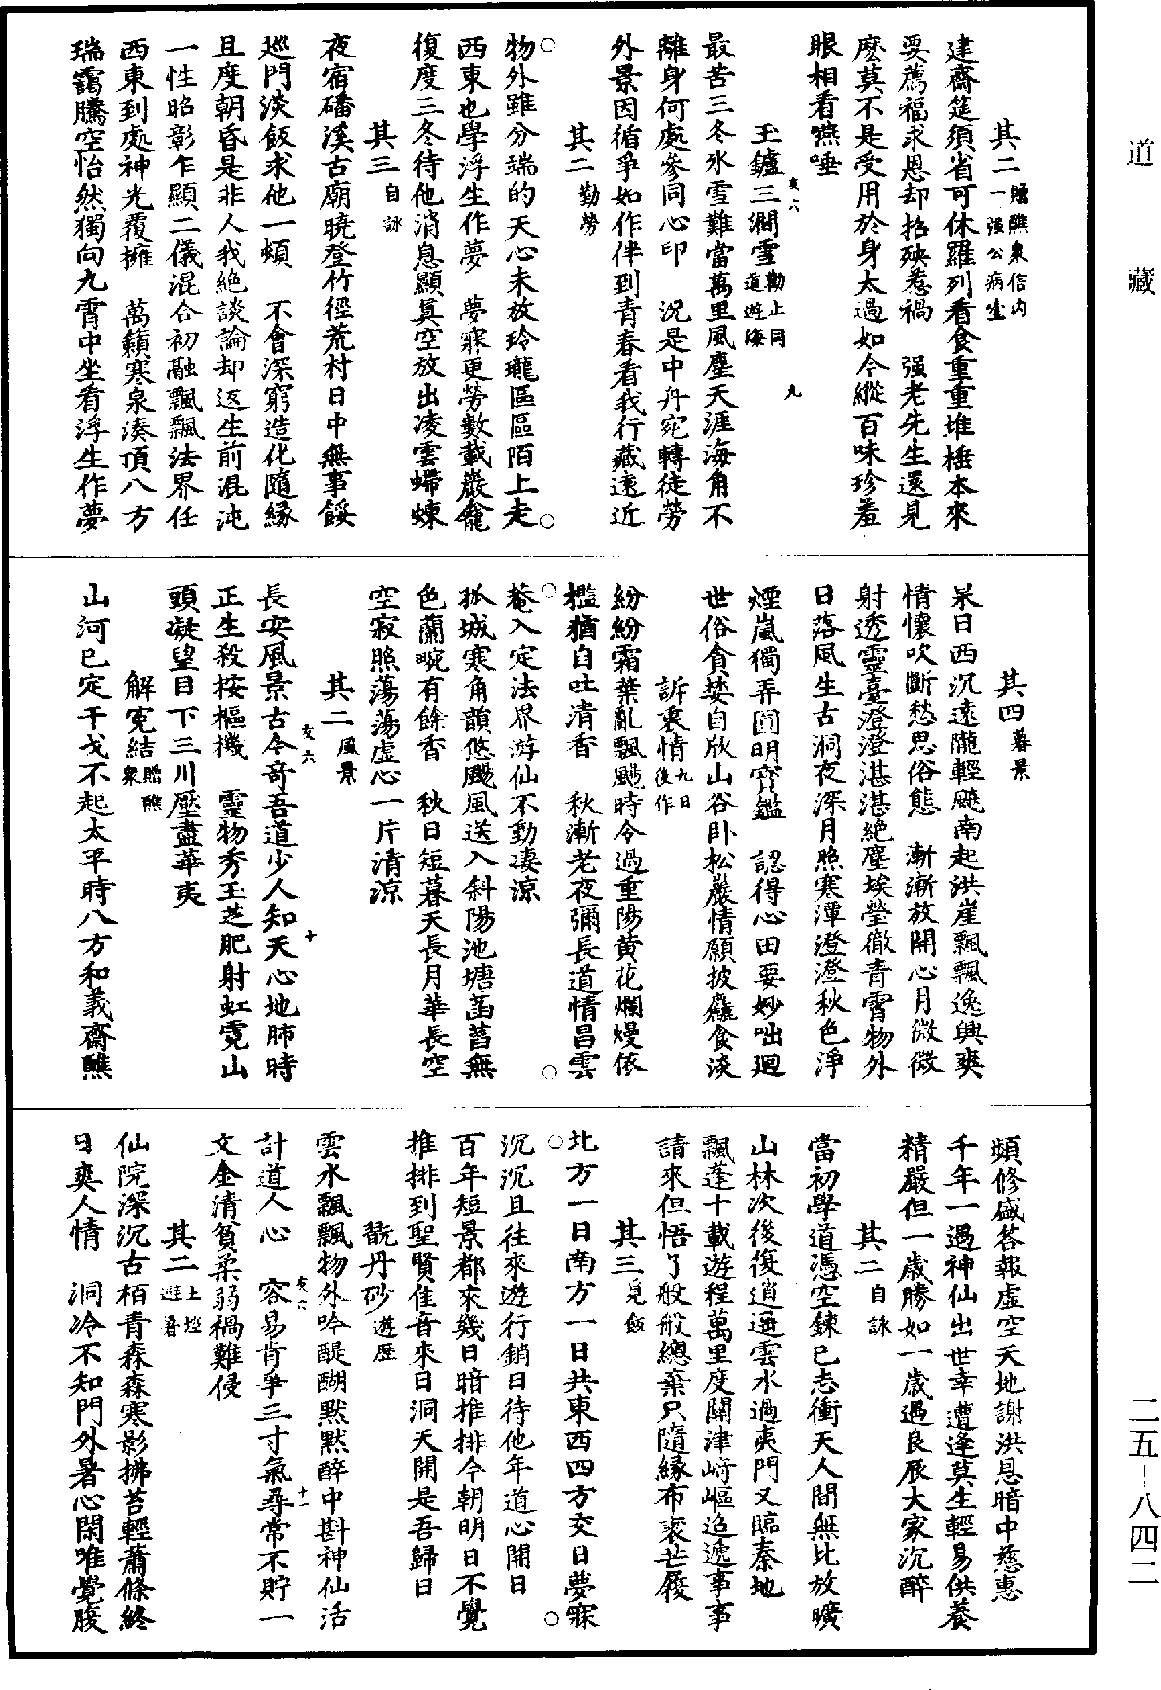 道藏
其二贈醮衆信内一强公病生
建齋筵須省可休羅列看食重重堆檯本來
要薦福求恩却招殃惹禍　强老先生還見
麽莫不是受用於身太過如今縱百味珍羞
眼相看嚥唾
玉鑪三澗雪勸止同道遊海
最苦三冬氷雪難當萬里風塵天涯海角不
離身何處參同心印　況是中丹宛轉徒勞
外景因循爭如作伴到青春看我行藏遠近
其二勤勞
物外雖分端的天心未放玲瓏區區陌上走
西東也學浮生作夢　夢寐更勞數載巖龕
復度三冬待他消息顯真空放出凌雲螮蝀
其三自詠
夜宿磻溪古廟曉登竹徑荒村日中無事餒
巡門淡飯求他一頓　不會深窮造化隨緣
且度朝昏是非人我絶談論却返生前混沌
一性昭彰乍顯二儀混合初融飄飄法界任
西東到處神光覆擁　萬籟寒泉湊頂八方
瑞靄騰空怡然獨向九霄中坐看浮生作夢
其四暮景
杲日西沉遠隴輕飈南起洪崖飄飄逸興爽
情懷吹斷愁思俗態　漸漸放開心月微微
射透靈臺澄澄湛湛絶塵埃瑩徹青霄物外
日落風生古洞夜深月照寒潭澄澄秋色淨
煙嵐獨弄圓明寶鑑　認得心田要妙咄迴
世俗貪婪自欣山谷卧松巖情願披麤食淡
訴衷情九日後作
紛紛霜葉亂飄颺時令過重陽黄花爛熳依
檻猶自吐清香　秋漸老夜彌長道情昌雲
菴入定法界游仙不動凄涼
孤城寒角韻悠颺風送入斜陽池塘菡萏無
色蘭畹有餘香　秋日短暮天長月華長空
空寂照蕩蕩虚心一片清涼
其二風景
長安風景古今奇吾道少人知天心地肺時
正生殺按樞機　靈物秀玉芝肥射虹霓山
頭凝望目下三川壓盡華夷
解寃結贈醮衆
山河已定干戈不起太平時八方和義齋醮
頻修盛答報虚空天地謝洪恩暗中慈惠
千年一遇神仙出世幸遭逢莫生輕易供養
精嚴但一歲勝如一歲遇良辰大家沉醉
其二自詠
當初學道憑空鍊已志衝天人間無比放曠
山林次後復逍遥雲水過夷門又臨秦地
飄蓬十載遊程萬里度關津崎嶇迢遞事事
請來但悟了般般總棄只隨緣布裘芒屨
其三覓飯
北方一日南方一日共東西四方交日夢寐
沉沉且往來遊行銷日待他年道心開日
百年短景都來幾日暗推排今朝明日不覺
推排到聖賢佳音來日洞天開是吾歸日
翫丹砂遊歷
雲水飄飄物外吟醍醐黙黙醉中斟神仙活
計道人心　容易肯爭三寸氣尋常不貯一
文金清貧柔弱禍難侵
其二上㙮遊暑
仙院深沉古栢青森森寒影拂苔輕蕭條終
日爽人情　洞冷不知門外暑心閑唯覺腹
二五—八四二